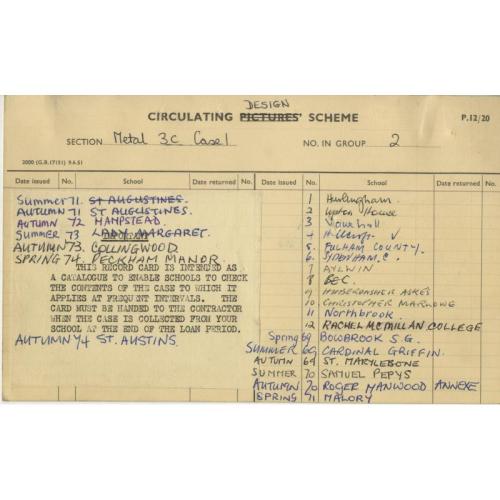 DESIGN
CIRCULATING PICTURES' SCHEME P.12/20
SECTION Metal 3C Case 1 NO. IN GROUP 2
2000 (G.B.17151) 9.6.51
Date issued No. School Date returned No.
Summer 71. ST AUGUSTINES.
AUTUMN 71 ST AUGUSTINES.
AUTUMN 72 HAMPSTEAD.
SUMMER 73 LADY MARGARET.
AUTUMN 73. COLLINGWOOD
SPRING 74. PECKHAM MANOR.
THIS RECORD CARD IS INTENDED AS
A CATALOGUE TO ENABLE SCHOOLS TO CHECK
THE CONTENTS OF THE CASE TO WHICH IT
APPLIES AT FREQUENT INTERVALS. THE
CARD MUST BE HANDED TO THE CONTRACTOR
WHEN THE CASE IS COLLECTED FROM YOUR
SCHOOL AT THE END OF THE LOAN PERIOD.
AUTUMN 74 ST. AUSTINS.
Date issued No. School Date returned No.
1 Hurlingham.
2 House
3 Vauxhall
4
5. FULHAM COUNTY.
6. SYDENHAM. C.
7 AYLWIN
8 BEC.
9 HABERDASHER ASKES
10 CHRISTOPHER MARLOWE
11 Northbrook
12 RACHEL MCMILLAN COLLEGE
Spring 69 BOWBROOK S.G.
SUMMER 69 CARDINAL GRIFFIN.
AUTUMN 69 ST. MARYLEBONE
SUMMER 70 SAMUEL PEPYS
AUTUMN 70 ROGER MANWOOD ANNEXE
SPRING 71 MALORY